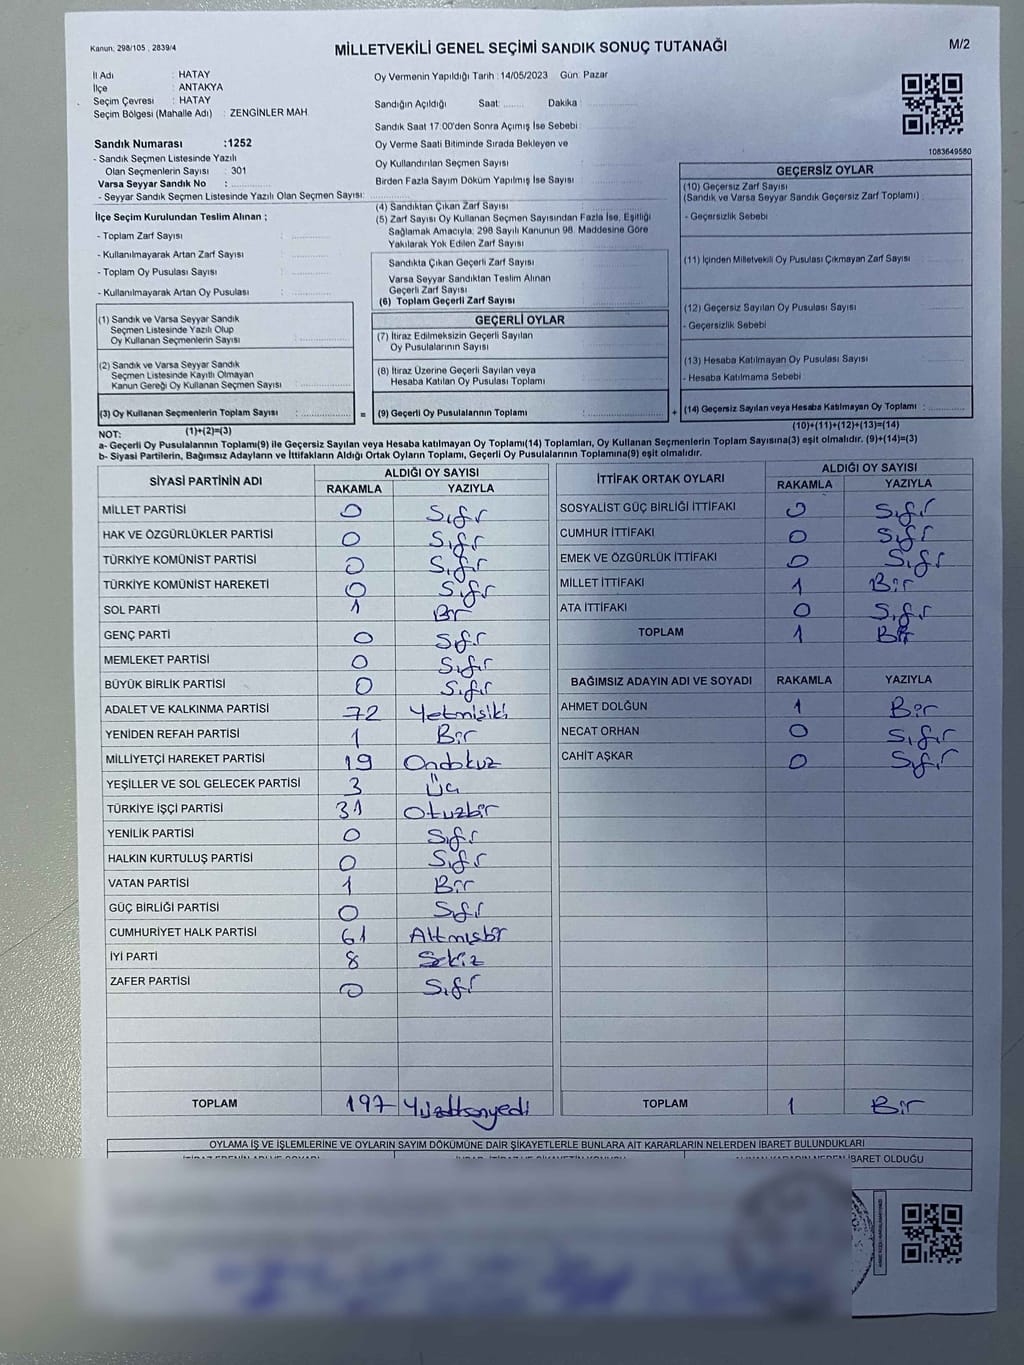 Kanun: 298/105 , 2839/4
MİLLETVEKİLİ GENEL SEÇİMİ SANDIK SONUÇ TUTANAĞI
M/2
İl Adı : HATAY
İlçe : ANTAKYA
Seçim Çevresi : HATAY
Seçim Bölgesi (Mahalle Adı) : ZENGİNLER MAH
Sandık Numarası :1252
- Sandık Seçmen Listesinde Yazılı
Olan Seçmenlerin Sayısı : 301
Varsa Seyyar Sandık No :
- Seyyar Sandık Seçmen Listesinde Yazılı Olan Seçmen Sayısı:
İlçe Seçim Kurulundan Teslim Alınan ;
- Toplam Zarf Sayısı :
- Kullanılmayarak Artan Zarf Sayısı :
- Toplam Oy Pusulası Sayısı :
- Kullanılmayarak Artan Oy Pusulası :
(1) Sandık ve Varsa Seyyar Sandık
Seçmen Listesinde Yazılı Olup
Oy Kullanan Seçmenlerin Sayısı :
(2) Sandık ve Varsa Seyyar Sandık
Seçmen Listesinde Kayıtlı Olmayan
Kanun Gereği Oy Kullanan Seçmen Sayısı :
(3) Oy Kullanan Seçmenlerin Toplam Sayısı :
(1)+(2)=(3)
Oy Vermenin Yapıldığı Tarih : 14/05/2023 Gün: Pazar
Sandığın Açıldığı Saat: Dakika :
Sandık Saat 17:00'den Sonra Açımış İse Sebebi :
Oy Verme Saati Bitiminde Sırada Bekleyen ve
Oy Kullandırılan Seçmen Sayısı :
Birden Fazla Sayım Döküm Yapılmış İse Sayısı :
(4) Sandıktan Çıkan Zarf Sayısı :
(5) Zarf Sayısı Oy Kullanan Seçmen Sayısından Fazla İse, Eşitliği
Sağlamak Amacıyla; 298 Sayılı Kanunun 98. Maddesine Göre
Yakılarak Yok Edilen Zarf Sayısı :
Sandıkta Çıkan Geçerli Zarf Sayısı :
Varsa Seyyar Sandıktan Teslim Alınan
Geçerli Zarf Sayısı :
(6) Toplam Geçerli Zarf Sayısı :
GEÇERLİ OYLAR
(7) İtiraz Edilmeksizin Geçerli Sayılan
Oy Pusulalarının Sayısı :
(8) İtiraz Üzerine Geçerli Sayılan veya
Hesaba Katılan Oy Pusulası Toplamı :
= (9) Geçerli Oy Pusulalarının Toplamı :
1083649580
GEÇERSİZ OYLAR
(10) Geçersiz Zarf Sayısı
(Sandık ve Varsa Seyyar Sandık Geçersiz Zarf Toplamı) :
- Geçersizlik Sebebi :
(11) İçinden Milletvekili Oy Pusulası Çıkmayan Zarf Sayısı :
(12) Geçersiz Sayılan Oy Pusulası Sayısı :
- Geçersizlik Sebebi :
(13) Hesaba Katılmayan Oy Pusulası Sayısı :
- Hesaba Katılmama Sebebi :
+ (14) Geçersiz Sayılan veya Hesaba Katılmayan Oy Toplamı :
(10)+(11)+(12)+(13)=(14)
NOT:
a- Geçerli Oy Pusulalarının Toplamı(9) ile Geçersiz Sayılan veya Hesaba katılmayan Oy Toplamı(14) Toplamları, Oy Kullanan Seçmenlerin Toplam Sayısına(3) eşit olmalıdır. (9)+(14)=(3)
b- Siyasi Partilerin, Bağımsız Adayların ve İttifakların Aldığı Ortak Oyların Toplamı, Geçerli Oy Pusulalarının Toplamına(9) eşit olmalıdır.
SİYASİ PARTİNİN ADI ALDIĞI OY SAYISI
RAKAMLA YAZIYLA
MİLLET PARTİSİ 0 Sıfır
HAK VE ÖZGÜRLÜKLER PARTİSİ 0 Sıfır
TÜRKİYE KOMÜNİST PARTİSİ 0 Sıfır
TÜRKİYE KOMÜNİST HAREKETİ 0 Sıfır
SOL PARTİ 1 Bir
GENÇ PARTİ 0 Sıfır
MEMLEKET PARTİSİ 0 Sıfır
BÜYÜK BİRLİK PARTİSİ 0 Sıfır
ADALET VE KALKINMA PARTİSİ 72 Yetmişiki
YENİDEN REFAH PARTİSİ 1 Bir
MİLLİYETÇİ HAREKET PARTİSİ 19 Ondokuz
YEŞİLLER VE SOL GELECEK PARTİSİ 3 Üç
TÜRKİYE İŞÇİ PARTİSİ 31 Otuzbir
YENİLİK PARTİSİ 0 Sıfır
HALKIN KURTULUŞ PARTİSİ 0 Sıfır
VATAN PARTİSİ 1 Bir
GÜÇ BİRLİĞİ PARTİSİ 0 Sıfır
CUMHURİYET HALK PARTİSİ 61 Altmışbir
İYİ PARTİ 8 Sekiz
ZAFER PARTİSİ 0 Sıfır
TOPLAM 197 Yüzdoksanyedi
İTTİFAK ORTAK OYLARI ALDIĞI OY SAYISI
RAKAMLA YAZIYLA
SOSYALİST GÜÇ BİRLİĞİ İTTİFAKI 0 Sıfır
CUMHUR İTTİFAKI 0 Sıfır
EMEK VE ÖZGÜRLÜK İTTİFAKI 0 Sıfır
MİLLET İTTİFAKI 1 Bir
ATA İTTİFAKI 0 Sıfır
TOPLAM 1 Bir
BAĞIMSIZ ADAYIN ADI VE SOYADI RAKAMLA YAZIYLA
AHMET DOLĞUN 1 Bir
NECAT ORHAN 0 Sıfır
CAHİT AŞKAR 0 Sıfır
TOPLAM 1 Bir
OYLAMA İŞ VE İŞLEMLERİNE VE OYLARIN SAYIM DÖKÜMÜNE DAİR ŞİKAYETLERLE BUNLARA AİT KARARLARIN NELERDEN İBARET BULUNDUKLARI
İBARET OLDUĞU